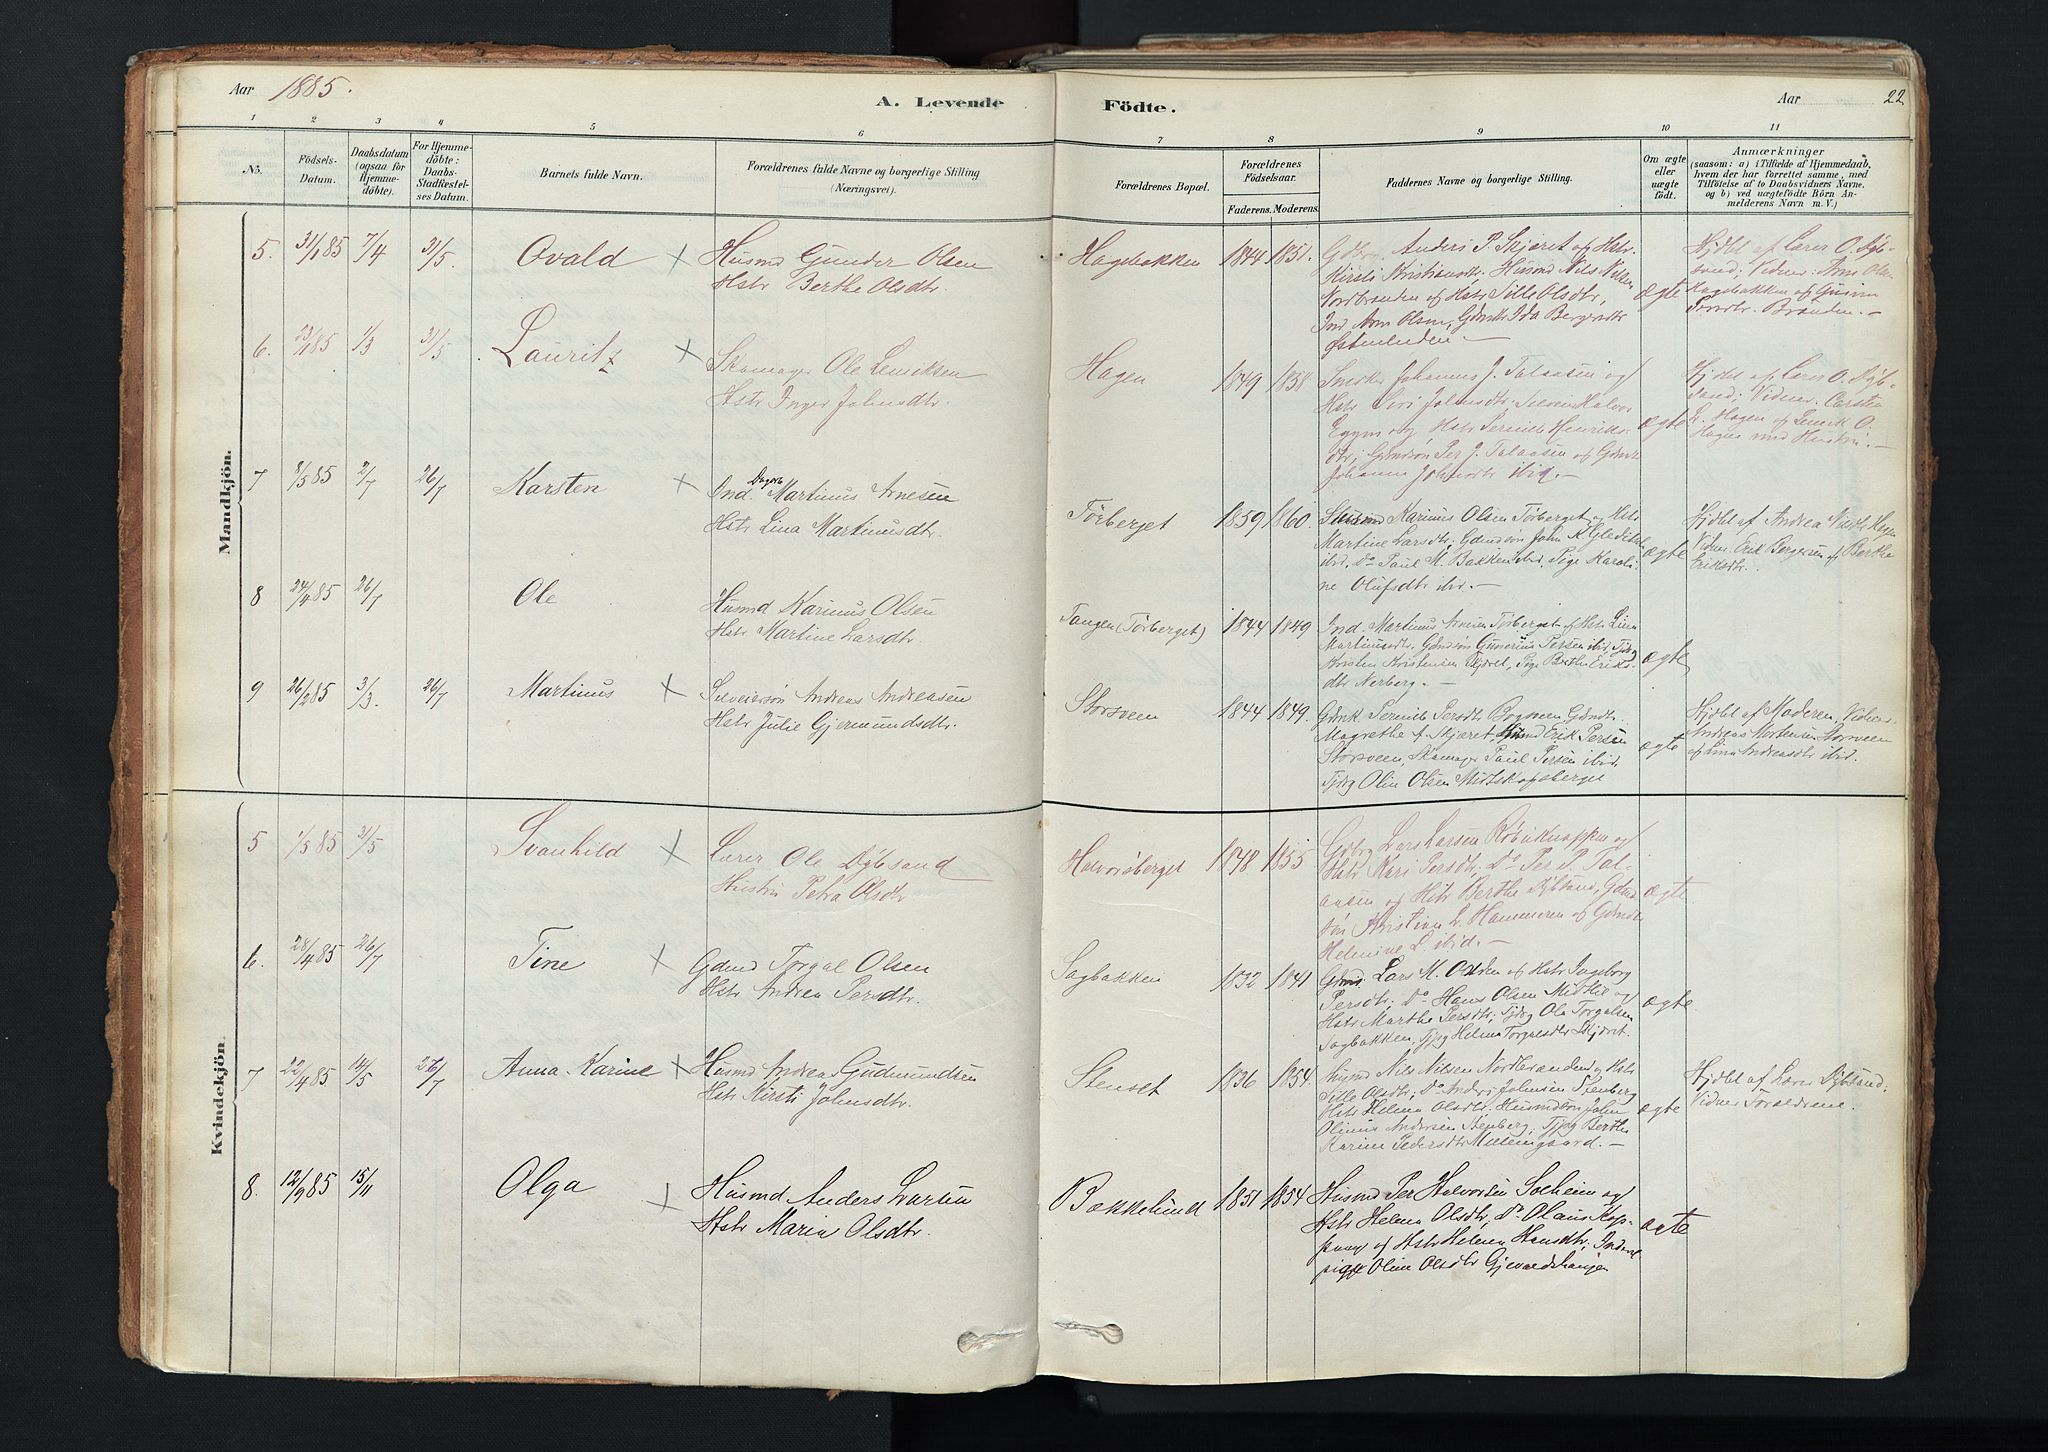 Aar 1885.
A. Levende Födte.
Aar 22
1 2 3 4 5 6 7 8 9 10 11
No.
Födsels-Datum.
Daabsdatum (ogsaa for Hjemmedöbte).
For Hjemmedöbte: Daabs-Stadfæstelses Datum.
Barnets fulde Navn.
Forældrenes fulde Navne og borgerlige Stilling
(Næringsvei).
Forældrenes Bopæl.
Forældrenes Födselsaar.
Faderens. Moderens.
Faddernes Navne og borgerlige Stilling.
Om ægte eller uægte födt.
Anmærkninger
(saasom: a) i Tilfælde af Hjemmedaab,
hvem der har forrettet samme, med
Tilföielse af to Daabsvidners Navne,
og b) ved uægtefödte Börn An-
melderens Navn m. V.)
Mandkjön.
5. 31/1 85 7/4 31/5. Ovald × Husmd Gunder Olsen
Hstr Berthe Olsdtr.
Hagebakken 1844 1851.
Anders P. Skjæret og Hstr.
Kirsti Kristiansdtr. Husmd Nils Nilsen
Nordbrænden og Hstr Sille Olsdtr,
Ind. Arne Olsen, Gdmk Ida Bergersdtr
ægte
Hjdbt af Lærer O. Dyb-
sand; Vidner: Arne Olsen
Hagebakken og
Brænden.
6. 23/1 85 1/3 31/5 Lauritz × Skomager Ole Lenriksen
Hstr Inger Johnsdtr.
Hagen 1849 1858
Johannes J. Talaasen og
Hstr Siri Johnsdtr. Halvor
og Hstr Pernille Henriks-
dtr; Gdmdsön Per J. Talaasen og
Johanne Johnsdtr ibid.
ægte
Hjdbt af Lærer O. Dyb-
sand; Vidner. Carsten
L. Hagen og Lenrik O.
Hagen med Hustru.
7 8/5 85 2/7 26/7 Karsten × Ind. Dagarb Martinus Arnesen
Hstr Lina Martinusdtr.
Törberget 1859 1860.
Husmd Karinus Olsen Törberget og Hstr
Martine Larsdtr; Gdmdsön John K.
ibid, Do Paul M. Bakken ibid, Pige Karoli-
ne Olufsdtr ibid.
ægte
Hjdbt af Andrea Hagen
Vidner. Erik Bergersen og Berthe
Eriksdtr.
8 24/4 85 26/7 Ole Husmd Karinus Olsen
Hstr Martine Larsdtr.
Tangen (Törberget) 1844 1849
Ind. Martinus Arnesen Törberget og Hstr Lina
Martinusdtr. Gdmdsön Gunerius Persen ibid, Tjdrg
Karsten Kristensen Skjæret, Pige Berthe Eriks-
dtr Nerberg.
ægte
9 26/2 85 3/3. 26/7 Martinus × Selveiersön Andreas Andreasen
Hstr Julie Gjermundsdtr.
Storsveen 1844 1849.
Gdmk Pernille Persdtr Bogsveen,
Magrethe A. Skjæret Erik Persen
Storsveen, Skomager Paul Persen ibid.
Tjdrg Olin Olsen Midtskogsberget
ægte
Hjdbt af Moderen, Vidner
Andreas Mortensen Storsveen
og Lina Andreasdtr ibid.
Kvindekjön.
5 1/5 85 31/5 Svanhild × Lærer Ole Dybsand
Hustru Petra Olsdtr
Halvorsberget 1848. 1855
Lars Larsen og
Hstr Kari Persdtr; Do Per P. Tal-
aasen og Hstr Berthe Dybsand,
sön Kristian L. Hammeren og
Helmine L. ibid.
ægte
6. 28/4 85 26/7 Tine × Gdmd Torgal Olsen
Hstr Andrea Persdtr.
Sagbakken 1832 1841
Gdmd. Lars M. og Hstr Ingeborg
Persdtr; Do Hans Olsen Midthil og
Hstr Marthe Persdtr; Tjdrg Ola Torgalsen
Sagbakken, Tjpg Helene Skjæret.
ægte
7 22/4 85 14/5 26/7 Anna Karine × Husmd Andreas Gudmundsen
Hstr Kirsti Johnsdtr.
Stenset 1836 1854.
Husmd Nils Nilsen Nordbrænden og Hstr
Sille Olsdtr; Do Anders Johnsen Stenberg
Hstr Helena Olsdtr. Husmdsön John
Olinus Andersen Stenberg; Tjpg Berthe
Karine Pedersdtr
ægte
Hjdbt af Lærer Dybsand;
Vidner Forældrene.
8. 12/9 85 15/11 Olga × Husmd Anders Larsen
Hstr Maren Olsdtr.
Bækkelund 1851 1854
Husmd Per Halvorsen Solheim og
Hstr Helena Olsdtr, Do Olaus Kop-
pang og Hstr Helene Hansdtr, Inderst-
pige Oline Olsdtr Gjevaldshaugen
ægte